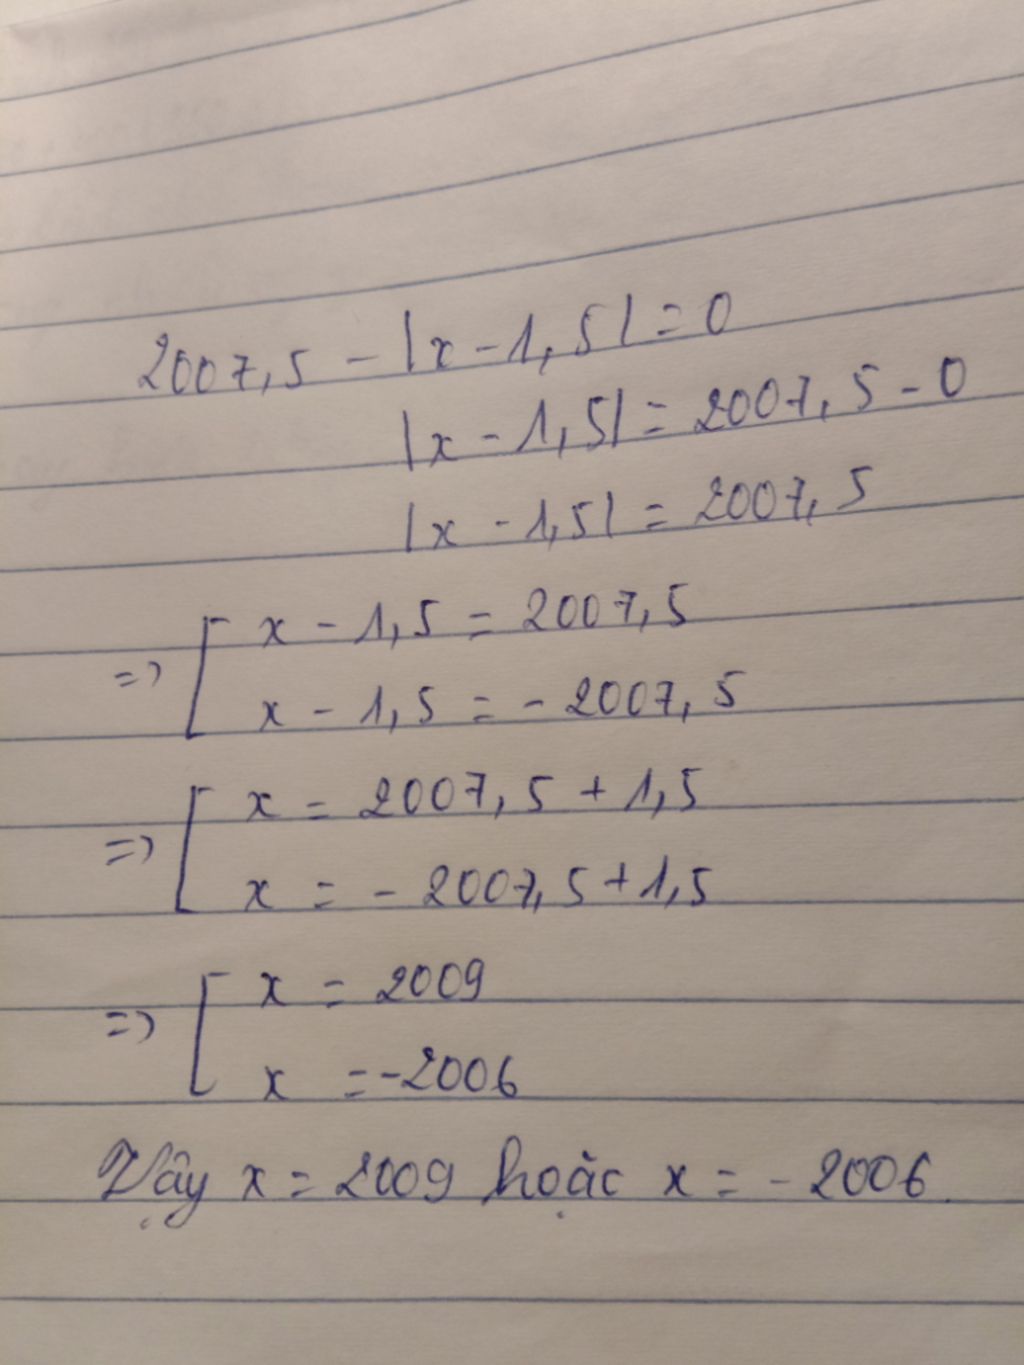 2007,5 - |x - 1,5| = 0
|x - 1,5| = 2007,5 - 0
|x - 1,5| = 2007,5
=> [ x - 1,5 = 2007,5
x - 1,5 = - 2007,5
=> [ x = 2007,5 + 1,5
x = - 2007,5 + 1,5
=> [ x = 2009
x = -2006
Vậy x = 2009 hoặc x = - 2006.